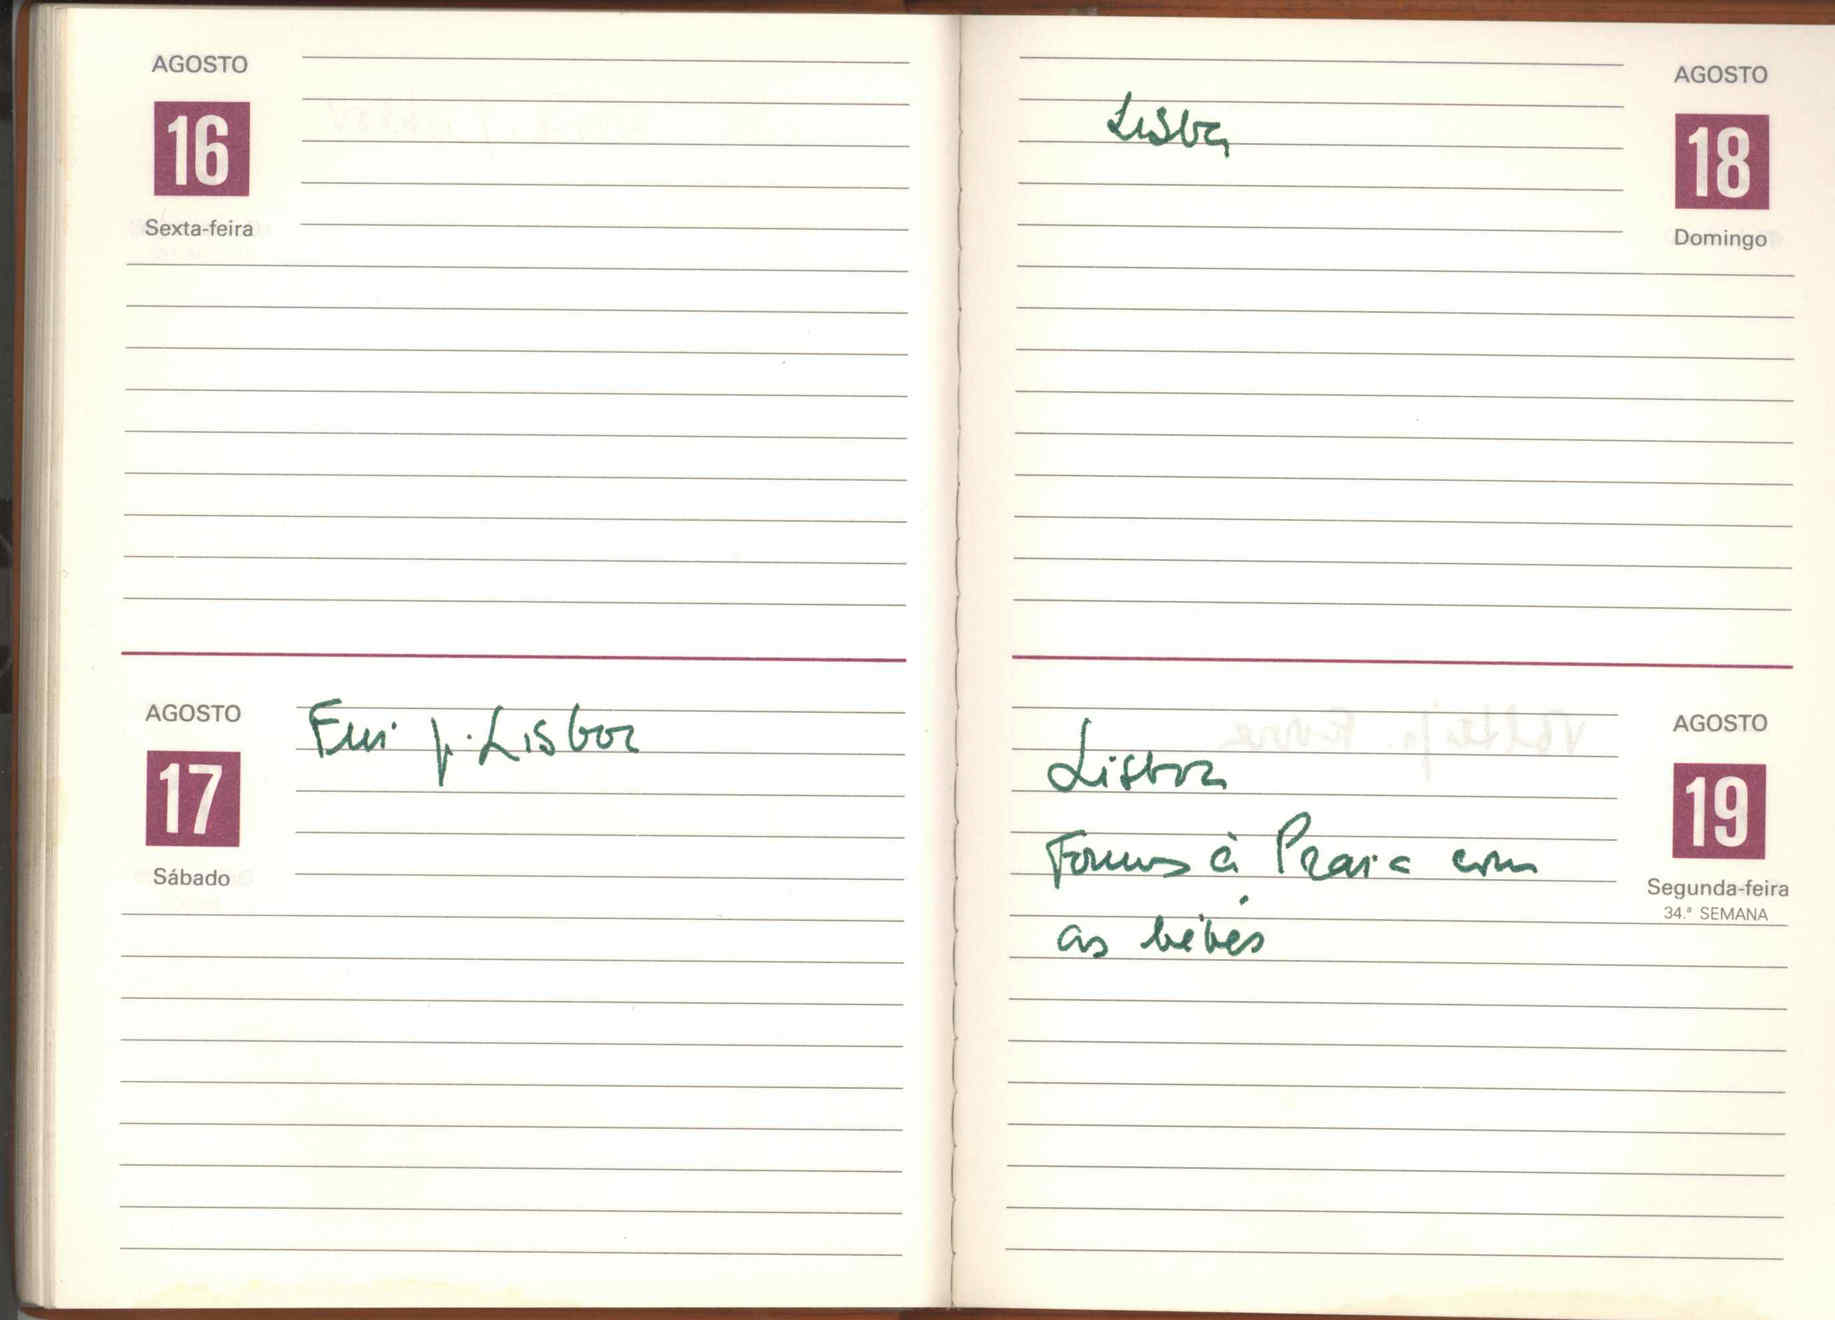 AGOSTO
16
Sexta-feira
AGOSTO
17
Sábado
Fui p. Lisboa
AGOSTO
18
Domingo
Lisboa
AGOSTO
19
Segunda-feira
34.ª SEMANA
Lisboa
Fomos à Praia com
as bébés